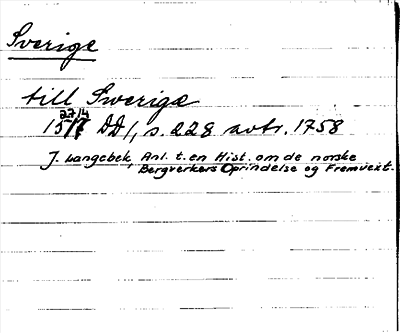 Sverige
till Swerige
27/4
15/7 DD/, s. 228 avtr. 1758
J. Langebek, Anl. t. en Hist. om de norske
Bergverkers Oprindelse og Fremvext.